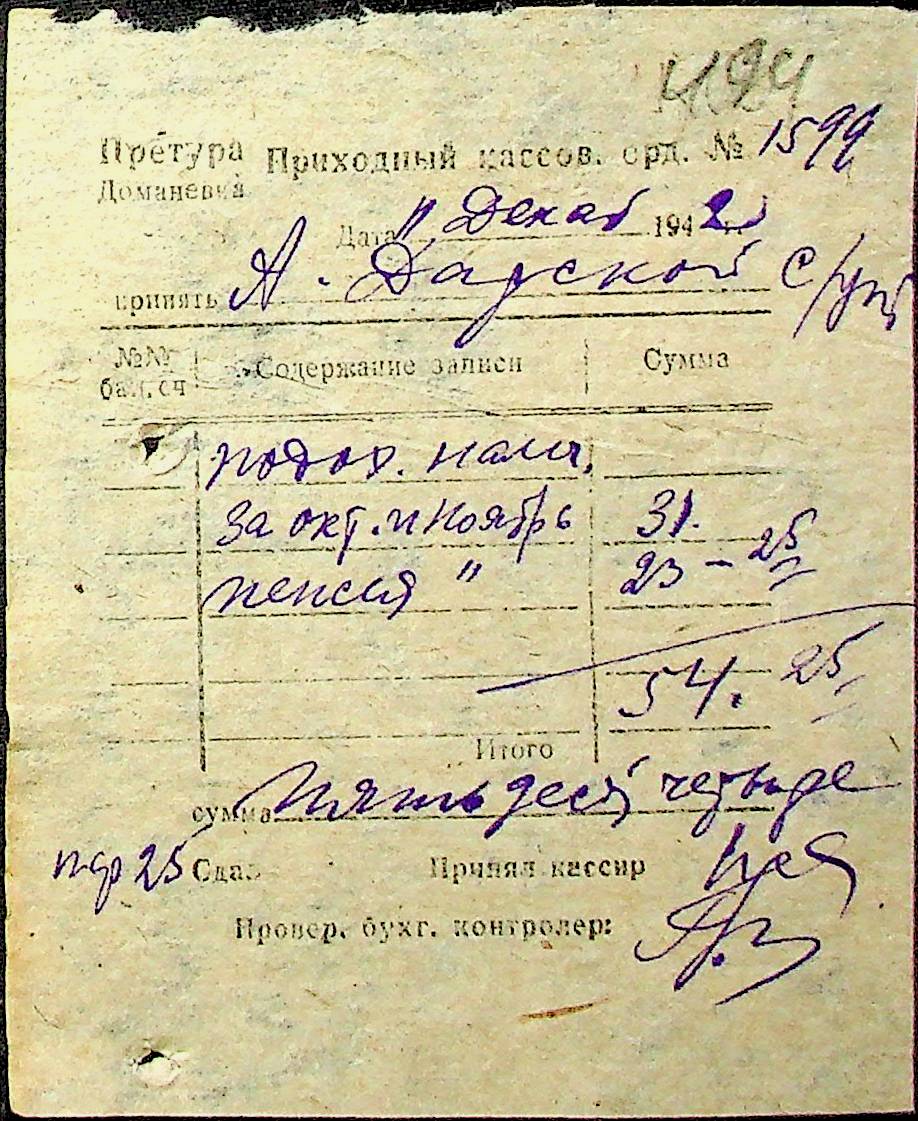 494
Претура Приходный кассов. орд. № 1599
Доманевка
Дата " Декаб 1942
принять А. Дадской с/уп
№№ бал. сч Содержание записи Сумма
подох. нал.
за окт. и ноябрь 31.
пенсия " 23 - 25
54. 25
Итого
сумма Пятьдесят четыре
пф 25 Сдал Принял кассир
Провер. бухг. контролер: